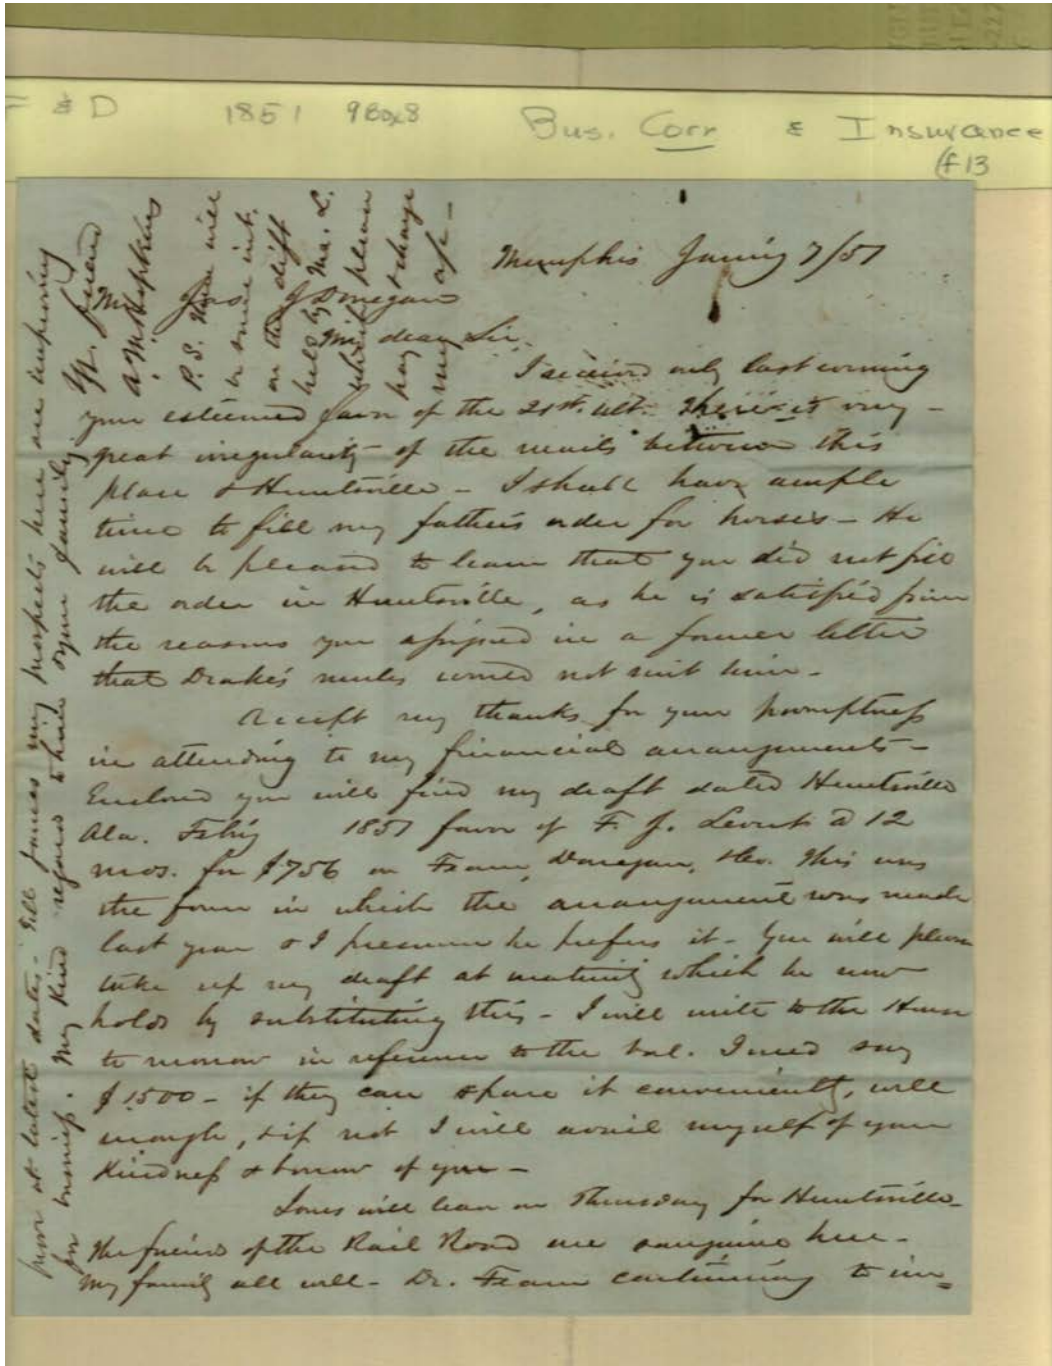 F & D 1851 9Box8 Bus. Corr & Insurance
(f13
Memphis Jan'y 7/51
Mr Jas J Donegan
My dear Sir.
I received only last evening
your esteemed favor of the 21st. ult. There is very
great irregularity of the mails between this
place & Huntsville - I shall have ample
time to fill my father's order for horses - He
will be pleased to learn that you did not fill
the order in Huntsville, as he is satisfied from
the reasons you assigned in a former letter
that Drake's mules would not suit him -
Accept my thanks for your promptness
in attending to my financial arrangements -
Enclosed you will find my draft dated Huntsville
Ala. Feb'y 1851 favor of F. J. Levert @ 12
mos. for $756 on Fearn, Donegan, &co. This was
the form in which the arrangement was made
last year & I presume he prefers it - You will please
take up my draft at maturity which he now
holds by substituting this - I will write to the House
to morrow in reference to the bal. I need say
$1500 - if they can spare it conveniently, well
enough, & if not I will avail myself of your
kindness & borrow of you -
Jones will leave on Thursday for Huntsville -
The friends of the Rail Road are sanguine here -
My family all well - Dr. Fearn continuing to im=
prove at latest dates - Tell Jones my prospects here are improving
for business. My kind regards to him & your family
Yr. friend
A M Hopkins
P.S. There will
be some int.
on the diff
held by Ma. L.
which please
pay & charge
my a/c -